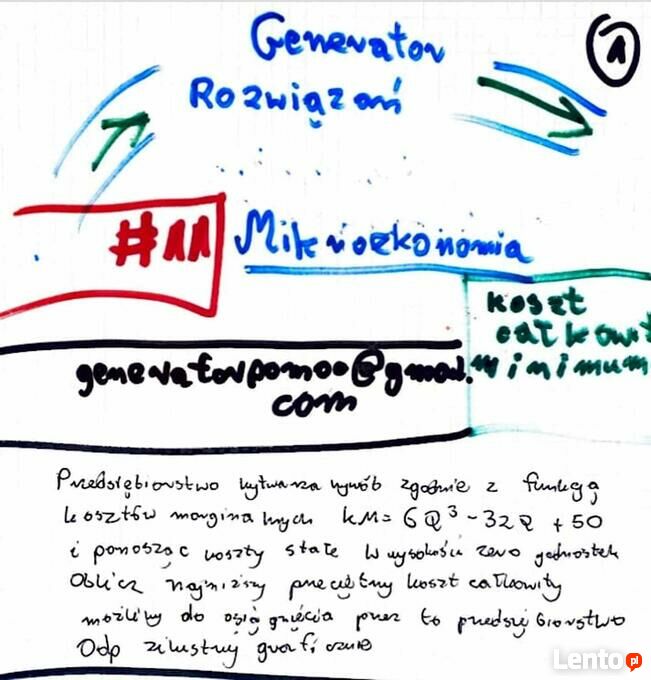 Generator
Rozwiązań
1
#11 Mikroekonomia
koszt
całkowit
minimum
generatorpomoo@gmail.
com
Przedsiębiorstwo wytwarza wyrób zgodnie z funkcją
kosztów marginalnych KM = 6Q³ - 32Q + 50
i ponosząc koszty stałe w wysokości zero jednostek
Oblicz najniższy przeciętny koszt całkowity
możliwy do osiągnięcia przez to przedsiębiorstwo
Odp zilustruj graficznie
Lento.pl